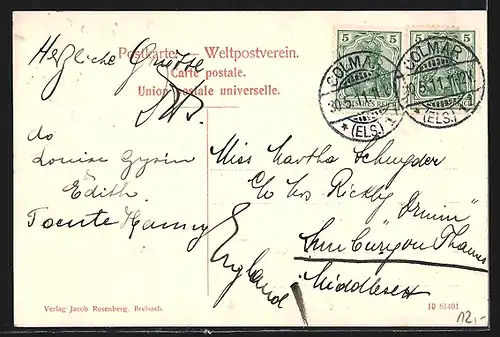 Postkarte. — Weltpostverein.
Carte postale.
Union postale universelle.
Herzliche Grüsse
do
Louise Gysin
Edith
Tante Hanny
5 5
5 5
COLMAR
30.5.11.11-12V
* (ELS.)
COLMAR
30.5.11.11-12V
* (ELS.)
Miss Martha Schnyder
c/o Mrs Rickby "Ormim"
Sunbury on Thames
Middlesex
England!
Verlag Jacob Rosenberg, Breisach.
10 61401
12,-